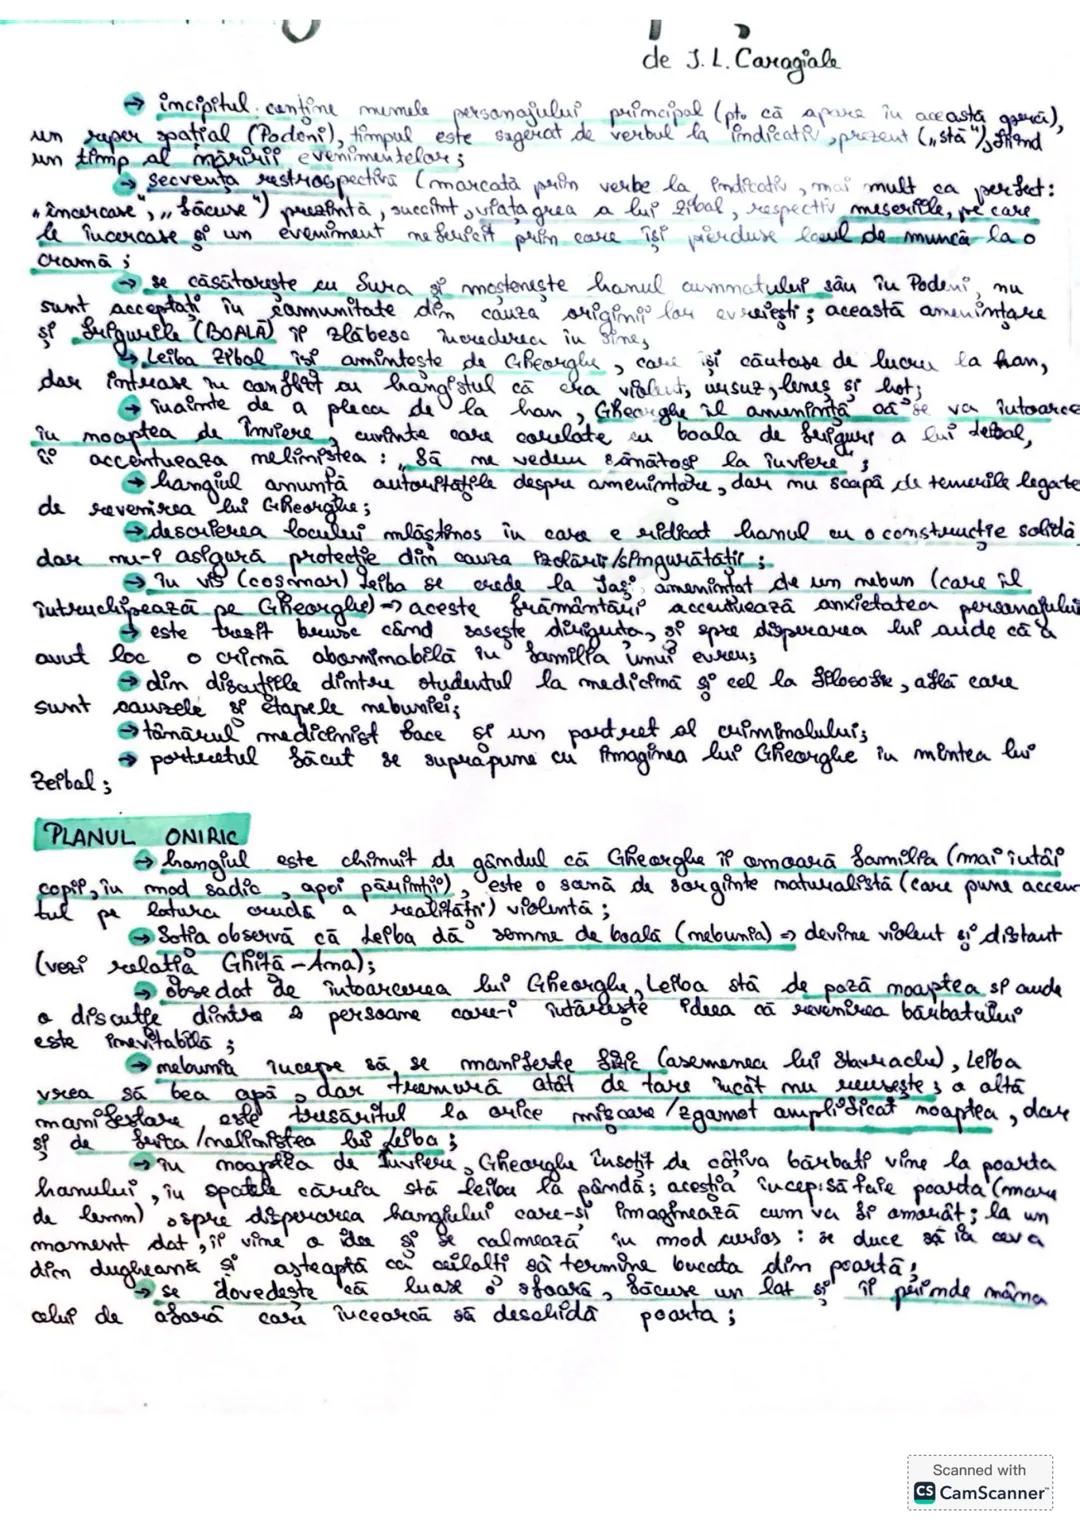 de I. L. Caragiale
→ incipitul conține numele personajului principal (pt. că apare în această gară),
un reper spațial (Podeni), timpul este sugerat de verbul la indicativ, prezent („stă"), fiind
un timp al măririi evenimentelor;
→ secvența restrospectivă (marcată prin verbe la indicativ, mai mult ca perfect:
„încercase", „făcuse") prezintă, succint, viața grea a lui Zibal, respectiv meseriile, pe care
le încercase și un eveniment nefericit prin care își pierduse locul de muncă la o
cramă;
→ se căsătorește cu Sura și moștenește hanul cumnatului său în Podeni, nu
sunt acceptați în comunitate din cauza originii lor evreiești; această amenințare
și frigurile (BOALA) îi slăbesc încrederea în sine;
→ Leiba Zibal își amintește de Gheorghe, care își căutase de lucru la han,
dar intrase în conflict cu hangistul că era violent, ursuz, leneș și hoț;
→ înainte de a pleca de la han, Gheorghe îl amenință că se va întoarce
în noaptea de Înviere, cuvinte care corelate cu boala de friguri a lui Leibal,
îi accentuează neliniștea: „Să ne vedem sănătoși la înviere";
→ hangiul anunță autoritățile despre amenințare, dar nu scapă de temerile legate
de revenirea lui Gheorghe;
→ descrierea locului mlăștinos în care e ridicat hanul cu o construcție solidă
dar nu-i asigură protecție din cauza izolării/singurătății;
→ în vis (coșmar) Leiba se crede la Iași, amenințat de un nebun (care îl
întruchipează pe Gheorghe) → aceste frământări accentuează anxietatea personajului
→ este trezit brusc când sosește diligența, și spre disperarea lui aude că a
avut loc o crimă abominabilă în familia unui evreu;
→ din discuțiile dintre studentul la medicină și cel la filosofie, află care
sunt cauzele și etapele nebuniei;
→ tânărul medicinist face și un portret al criminalului;
→ portretul făcut se suprapune cu imaginea lui Gheorghe în mintea lui
Zeibal;
PLANUL ONIRIC
→ hangiul este chinuit de gândul că Gheorghe îi omoară familia (mai întâi
copii, în mod sadic, apoi părinții), este o scenă de sorginte naturalistă (care pune accen-
tul pe latura crudă a realității) violentă;
→ Soția observă că Leiba dă semne de boală (nebunia) ⇒ devine violent și distant
(vezi relația Ghiță - Ana);
→ obsedat de întoarcerea lui Gheorghe, Leiba stă de pază noaptea și aude
o discuție dintre 2 persoane care-i întărește ideea că revenirea bărbatului
este inevitabilă;
→ nebunia începe să se manifeste fizic (asemenea lui Stavrache), Leiba
vrea să bea apă, dar tremură atât de tare încât nu reușește; o altă
manifestare este tresăritul la orice mișcare/zgomot amplificat noaptea, dar
și de frica/neliniștea lui Leiba;
→ în noaptea de Înviere, Gheorghe însoțit de câțiva bărbați vine la poarta
hanului, în spatele căreia stă leiba la pândă; aceștia încep să taie poarta (mare
de lemn), spre disperarea hangiului care-și imaginează cum va fi omorât; la un
moment dat, îi vine o idee și se calmează în mod curios: se duce să ia ceva
din dugheană și așteaptă ca ceilalți să termine bucata din poartă;
→ se dovedește că luase o sfoară, făcuse un laț și îi prinde mâna
celui de afară care încearcă să deschidă poarta;
Scanned with
CS CamScanner